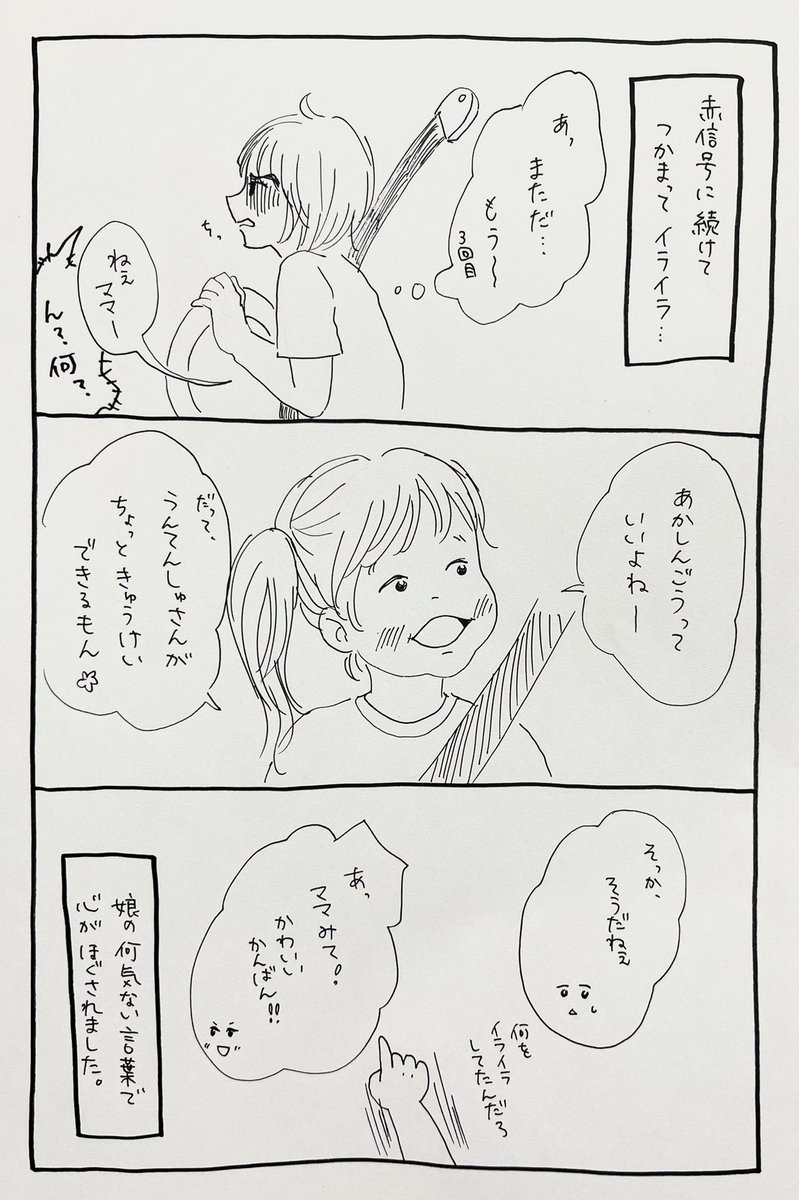 赤信号に続けて
つかまってイライラ…
あっ
まただ…
もう〜
3回目
ちっ
ねぇ
ママー
ん?
何?
あかしんごうって
いいよねー
だって、
うんてんしゅさんが
ちょっときゅうけい
できるもん
そっか、
そうだねぇ
何を
イライラ
してたんだろ
あっ
ママみて!
かわいい
かんばん!!
娘の何気ない言葉で
心がほぐされました。